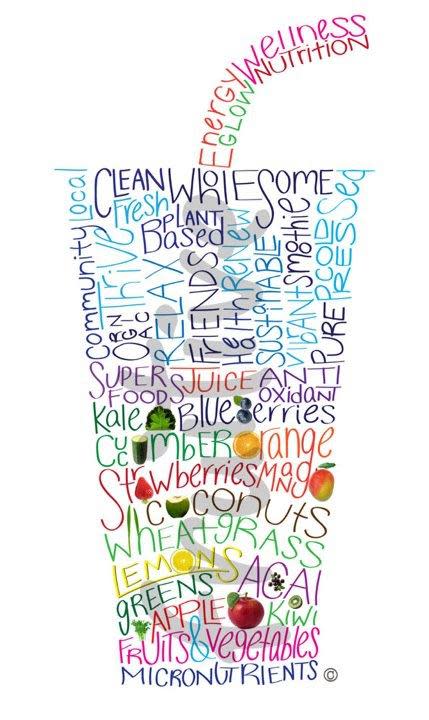 Energy Wellness
GLOW NUTRITION
Local CLEAN WhOLESOME
Community Thrive Fresh PLANT Based
ORGNAC RELAX FrIENDS Health Renew SUStaINABLE Smoothie VIBrANT PURE COLD PRESSed
SUPER FOODS JUICE ANTI oxidANT
Kale BLUEBerries
CUCUmbER Orange
StrawberriesMANgO
COCONUtS
WhEAtgRASS
LEMONS
gREENS ACAI
APPLE KiWi
FRUITS & Vegetables
MICRONUTRIENTS ©